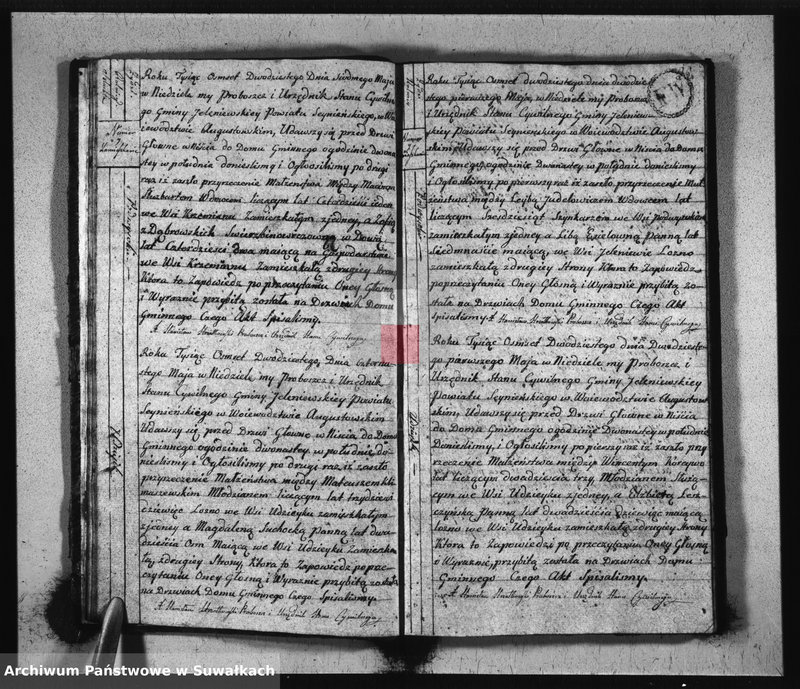 Roku Tysiąc Osmset Dwodziestego Dnia Siodmego Maja
w Niedziele my Proboszcz i Urzędnik Stanu Cywiln
go Gminy Jeleniewskiey Powiatu Seynińskiego, w Wo
iewodztwie Augustowskim, Udawszy się przed Drzwi
Głowne w Niścia do Domu Gminnego ogodzinie dwona
stey w południe donieslismy i Ogłosilismy po drugi
raz iż zaszło przyrzeczenie Małżeństwa Między
Wdowcem liczącym lat Czterdzieści ieden
we Wsi Krzemianu Zamieszkałym zjedney, a Zofią
z Dąbrowskich Wdową
lat Czterdzieści dwa maiącą na Gospodarstwie
we Wsi Krzemianu zamieszkałą zdrugiey Strony
Ktora to Zapowiedz po przeczytaniu Oney Głosną
i Wyraznie przybitą została na Drzwiach Domu
Gminnego Czego Akt Spisalismy.
Proboszcz i Urzędnik Stanu Cywilnego
Roku Tysiąc Osmset Dwodziestego, Dnia czterna
stego Maja w Niedziele my Proboszcz i Urzędnik
Stanu Cywilnego Gminy Jeleniewskiey Powiatu
Seynińskiego w Woiewodztwie Augustowskim
Udawszy się przed Drzwi Głowne w Niścia do Domu
Gminnego ogodzinie dwonastey w południe do
nieslismy i Ogłosilismy po drugi raz iż zaszło
przyrzeczenie Małżeństwa między Mateuszem
Młodzianem liczącym lat trzydzieści
we Wsi Udzieyku zamieszkałym
zjedney a Magdaleną Suchocką Panną lat dwa
dzieścia Osm Maiącą we Wsi Udzieyku Zamieszka
łą zdrugiey Strony, Ktora to Zapowiedz po prze
czytaniu Oney Głosną i Wyraznie przybitą została
na Drzwiach Domu Gminnego Czego Spisalismy.
Proboszcz i Urzędnik Stanu Cywilnego
Roku Tysiąc Osmset dwodziestego dnia dwódzie
stego pierwszego Maja, w Niedziele my Proboszcz
i Urzędnik Stanu Cywilnego Gminy Jeleniews
kiey Powiatu Seynenskiego w Woiewodztwie Augustow
skim, Udawszy się przed Drzwi Głowne w Niścia do Domu
Gminnego, ogodzinie Dwonastey w Południe donieslismy
i Ogłosilismy po pierwszy raz iż zaszło, przyrzeczenie Mał
żeństwa między Leybą Judelowiczem Wdowcem lat
liczącym Szesdziesiąt Szynkarzem we Wsi
zamieszkałym zjedney a Libą Panną lat
Siedmnaście maiącą, we Wsi Jeleniewie Lozno
zamieszkałą zdrugiey Strony Ktora to Zapowiedz
poprzeczytaniu Oney Głosną i Wyraznie przybitą zo
stała na Drzwiach Domu Gminnego Czego Akt
Spisalismy. Proboszcz i Urzędnik Stanu Cywilnego
Roku Tysiąc Osmset Dwodziestego dnia Dwudzieste
go pierwszego Maja w Niedziele my Proboszcz i
Urzędnik Stanu Cywilnego Gminy Jeleniewskiey
Powiatu Seynińskiego w Woiewodztwie Augustow
skim, Udawszy się przed Drzwi Głowne w Niścia
do Domu Gminnego ogodzinie Dwonastey w południe
Donieslismy, i Ogłosilismy po pierwszy raz iż zaszło przy
rzeczenie Małżeństwa między Wincentym
lat liczącym dwadzieścia trzy, Młodzianem Służą
cym we Wsi Udzieyku zjedney, a Elżbietą
Panną lat dwadzieścia dziewięć maiącą
Lozno we Wsi Udzieyku zamieszkałą zdrugiey Strony
Ktora to Zapowiedz po przeczytaniu Oney Głosną
o Wyraznie, przybitą została na Drzwiach Domu
Gminnego Czego Akt Spisalismy.
Proboszcz i Urzędnik Stanu Cywilnego
Archiwum Państwowe w Suwałkach